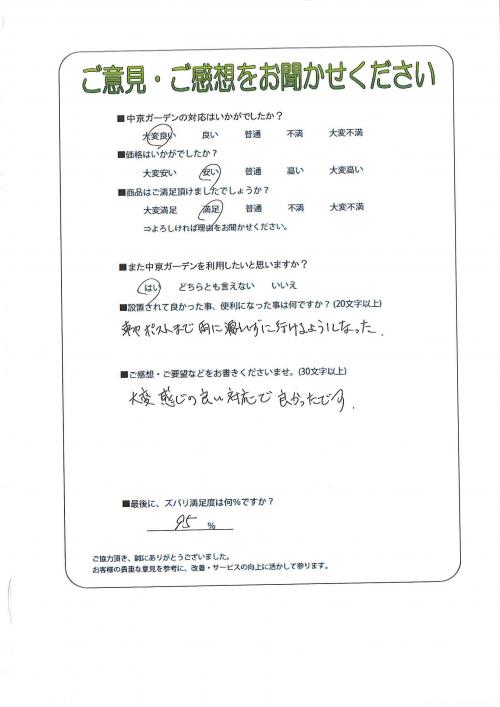 ご意見・ご感想をお聞かせください
■中京ガーデンの対応はいかがでしたか？
大変良い 良い 普通 不満 大変不満
■価格はいかがでしたか？
大変安い 安い 普通 高い 大変高い
■商品はご満足頂けましたでしょうか？
大変満足 満足 普通 不満 大変不満
⇒よろしければ理由をお聞かせください。
■また中京ガーデンを利用したいと思いますか？
はい どちらとも言えない いいえ
■設置されて良かった事、便利になった事は何ですか？(20文字以上)
車やポストまで雨に濡れずに行けるようになった.
■ご感想・ご要望などをお書きくださいませ。(30文字以上)
大変感じの良い対応で良かったです.
■最後に、ズバリ満足度は何％ですか？
95 %
ご協力頂き、誠にありがとうございました。
お客様の貴重な意見を参考に、改善・サービスの向上に活かして参ります。